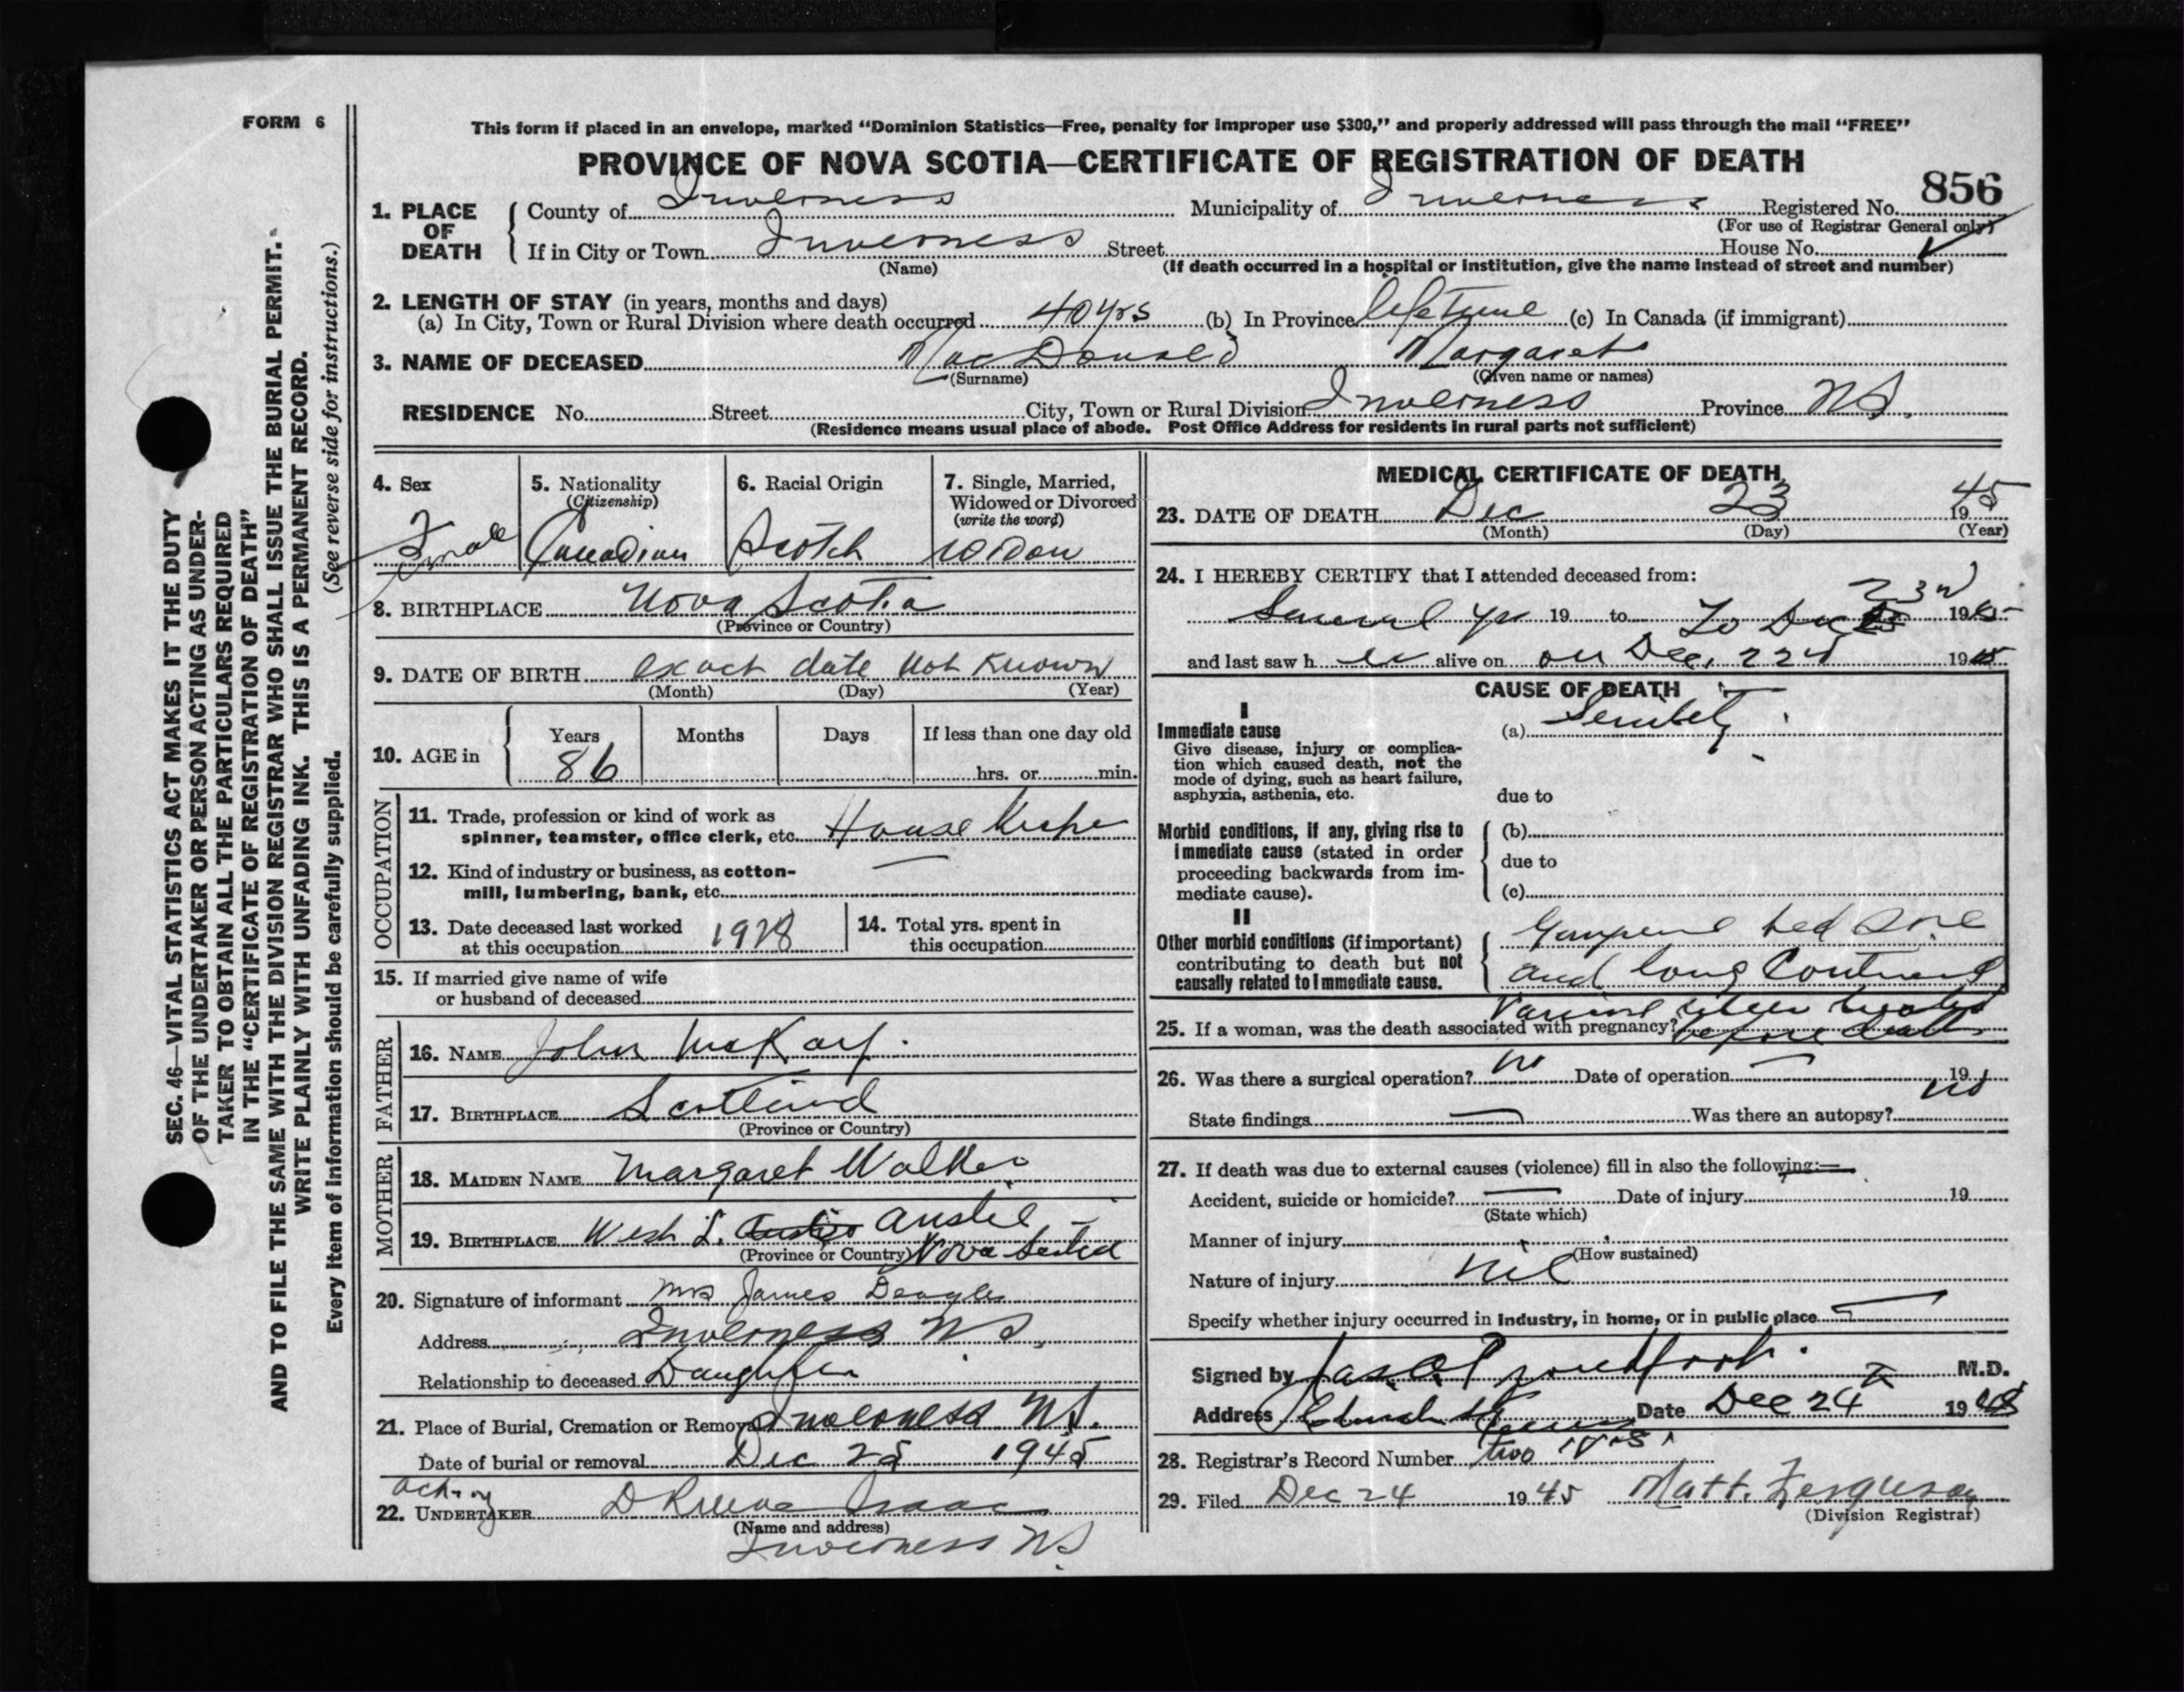 FORM 6
This form if placed in an envelope, marked "Dominion Statistics—Free, penalty for improper use $300," and properly addressed will pass through the mail "FREE"
PROVINCE OF NOVA SCOTIA—CERTIFICATE OF REGISTRATION OF DEATH
856
1. PLACE OF DEATH County of Inverness Municipality of Inverness Registered No.
(For use of Registrar General only)
If in City or Town Inverness Street House No.
(Name) (If death occurred in a hospital or institution, give the name instead of street and number)
2. LENGTH OF STAY (in years, months and days)
(a) In City, Town or Rural Division where death occurred 40 yrs (b) In Province lifetime (c) In Canada (if immigrant)
3. NAME OF DECEASED MacDonald Margaret
(Surname) (Given name or names)
RESIDENCE No. Street City, Town or Rural Division Inverness Province NS.
(Residence means usual place of abode. Post Office Address for residents in rural parts not sufficient)
4. Sex
Female
5. Nationality
(Citizenship)
Canadian
6. Racial Origin
Scotch
7. Single, Married,
Widowed or Divorced
(write the word)
Widow
8. BIRTHPLACE Nova Scotia
(Province or Country)
9. DATE OF BIRTH exact date not known
(Month) (Day) (Year)
10. AGE in Years Months Days If less than one day old
86 hrs. or min.
OCCUPATION
11. Trade, profession or kind of work as
spinner, teamster, office clerk, etc. House
12. Kind of industry or business, as cotton-
mill, lumbering, bank, etc. —
13. Date deceased last worked
at this occupation 1928
14. Total yrs. spent in
this occupation
15. If married give name of wife
or husband of deceased
FATHER
16. NAME John McKay.
17. BIRTHPLACE Scotland
(Province or Country)
MOTHER
18. MAIDEN NAME Margaret Walker
19. BIRTHPLACE West L. Ainslie
(Province or Country) Nova Scotia
20. Signature of informant Mrs James Deagle
Address Inverness NS.
Relationship to deceased Daughter
21. Place of Burial, Cremation or Removal Inverness NS.
Date of burial or removal Dec 25 1945
Acting
22. UNDERTAKER Isaac
(Name and address)
Inverness NS
MEDICAL CERTIFICATE OF DEATH
23. DATE OF DEATH Dec 23 1945
(Month) (Day) (Year)
24. I HEREBY CERTIFY that I attended deceased from:
Several yrs 19 to To Dec 23rd 1945
and last saw h er alive on on Dec. 22d 1945
CAUSE OF DEATH
I
Immediate cause
Give disease, injury or complica-
tion which caused death, not the
mode of dying, such as heart failure,
asphyxia, asthenia, etc.
(a) Senility.
due to
Morbid conditions, if any, giving rise to
immediate cause (stated in order
proceeding backwards from im-
mediate cause).
(b)
due to
(c)
II
Other morbid conditions (if important)
contributing to death but not
causally related to immediate cause.
bed sore
and long Continued
before death
25. If a woman, was the death associated with pregnancy?
26. Was there a surgical operation? no Date of operation — 19
State findings — Was there an autopsy? no
27. If death was due to external causes (violence) fill in also the following:—
Accident, suicide or homicide? — Date of injury 19
(State which)
Manner of injury
(How sustained)
Nature of injury nil
Specify whether injury occurred in industry, in home, or in public place —
Signed by M.D.
Address Date Dec 24 1945
28. Registrar's Record Number two
29. Filed Dec 24 1945 Matt. Ferguson
(Division Registrar)
SEC. 46—VITAL STATISTICS ACT MAKES IT THE DUTY
OF THE UNDERTAKER OR PERSON ACTING AS UNDER-
TAKER TO OBTAIN ALL THE PARTICULARS REQUIRED
IN THE "CERTIFICATE OF REGISTRATION OF DEATH"
AND TO FILE THE SAME WITH THE DIVISION REGISTRAR WHO SHALL ISSUE THE BURIAL PERMIT.
WRITE PLAINLY WITH UNFADING INK. THIS IS A PERMANENT RECORD.
Every item of information should be carefully supplied. (See reverse side for instructions.)